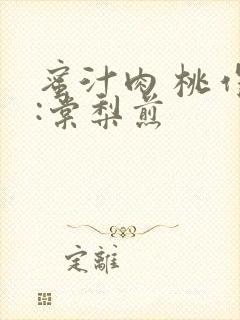 蜜汁肉桃 作
:棠梨煎
定離